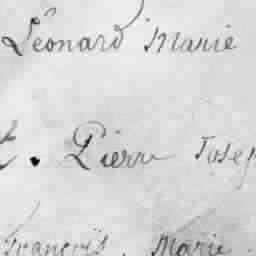 Léonard Marie
t. Pierre Josep
François. Marie